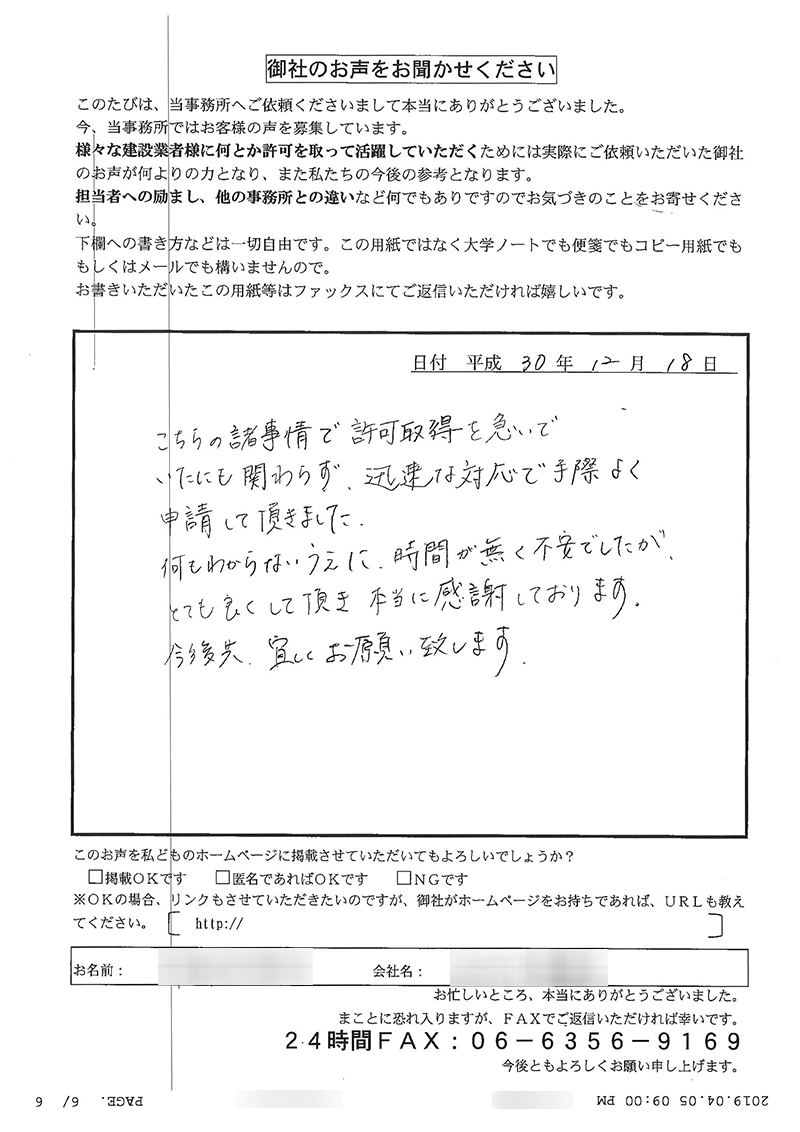 御社のお声をお聞かせください
このたびは、当事務所へご依頼くださいまして本当にありがとうございました。
今、当事務所ではお客様の声を募集しています。
様々な建設業者様に何とか許可を取って活躍していただくためには実際にご依頼いただいた御社
のお声が何よりの力となり、また私たちの今後の参考となります。
担当者への励まし、他の事務所との違いなど何でもありですのでお気づきのことをお寄せくださ
い。
下欄への書き方などは一切自由です。この用紙ではなく大学ノートでも便箋でもコピー用紙でも
もしくはメールでも構いませんので。
お書きいただいたこの用紙等はファックスにてご返信いただければ嬉しいです。
日付 平成 30 年 12 月 18 日
こちらの諸事情で許可取得を急いで
いたにも関わらず、迅速な対応で手際よく
申請して頂きました.
何もわからないうえに、時間が無く不安でしたが、
とても良くして頂き本当に感謝しております。
今後共、宜しくお願い致します.
このお声を私どものホームページに掲載させていただいてもよろしいでしょうか？
□掲載ＯＫです □匿名であればＯＫです □ＮＧです
※ＯＫの場合、リンクもさせていただきたいのですが、御社がホームページをお持ちであれば、ＵＲＬも教え
てください。［ http:// ］
お名前： 会社名：
お忙しいところ、本当にありがとうございました。
まことに恐れ入りますが、ＦＡＸでご返信いただければ幸いです。
２４時間ＦＡＸ：０６－６３５６－９１６９
今後ともよろしくお願い申し上げます。
2019.04.05 09:00 PM PAGE. 6/ 6